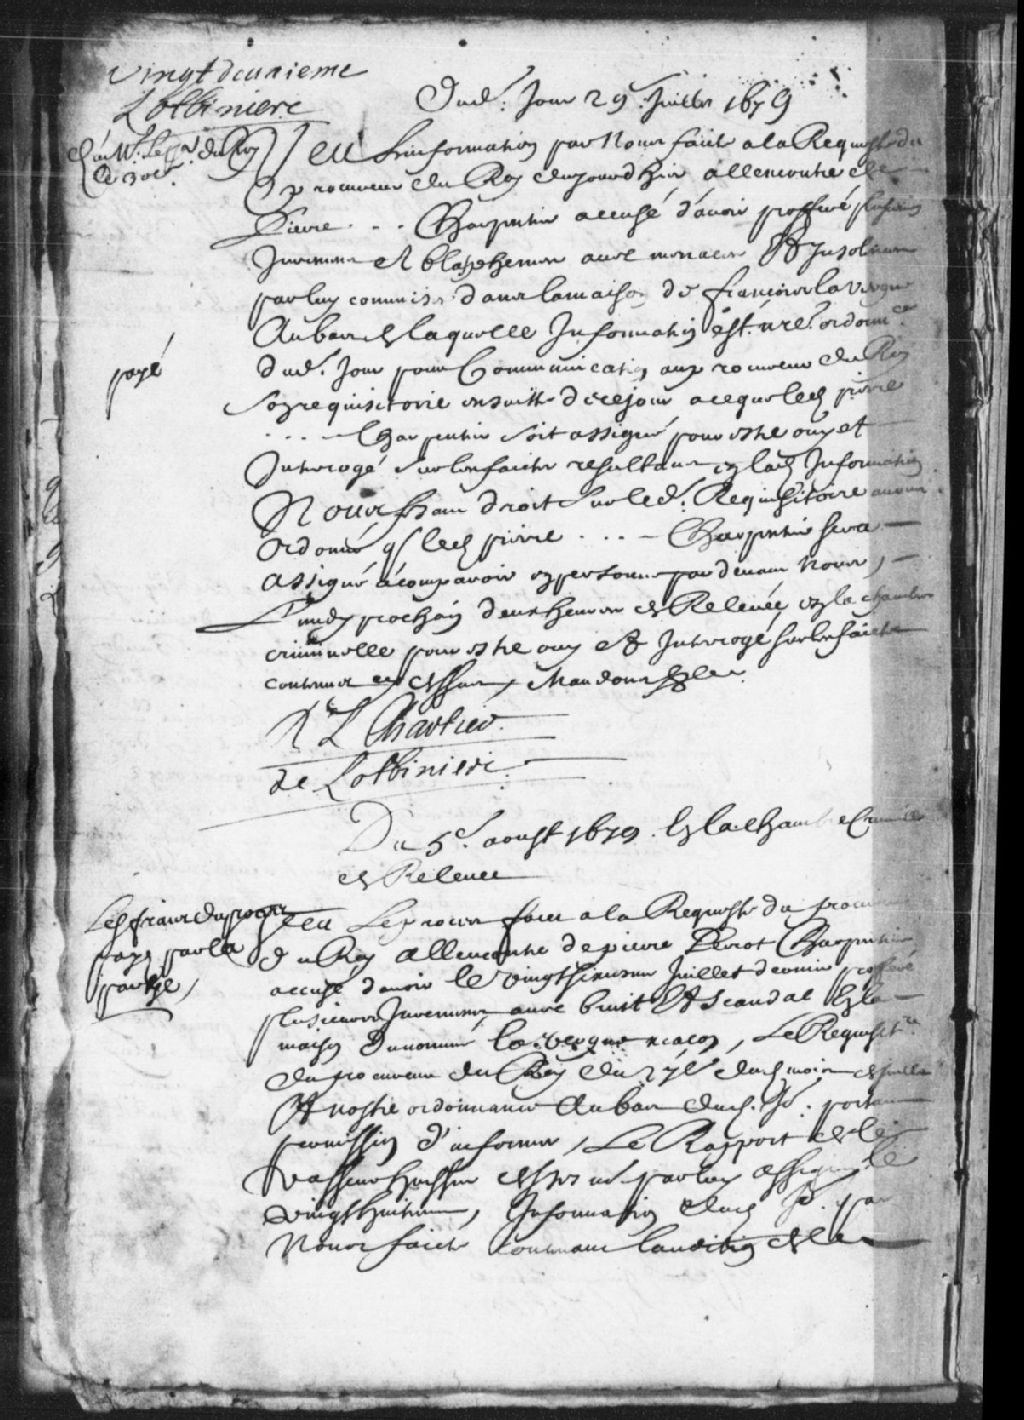 Vingt deuxieme
Lotbiniere
Dud. Jour 29e. Juillet 1679
Veu L'information par Nous faite a la Requeste du
procureur du Roy dujourdhier allencontre de
Pierre . . . Charpentier accusé d'avoir proferé plusieurs
Juremens et blasphemes avec menaces et Insolences
par luy commises dans la maison de francois lavergne
Au bas de laquelle Information est nre. ordonnce
dud. Jour pour Communication aux procureur du Roy
payé
Son requisitoire ensuitte de ce jour a ce que led pierre
. . . . Charpentier soit assigné pour estre ouy et
Interogé sur les faicts resultans en lad Information
Nous faisant droit sur led. Requisitoire avons
Ordonné q led pierre . . . . Charpentier sera
assigné a comparoir en personne pardevant Nous,
Lundy prochain deux heures de Relevée en la chambre
criminelle pour estre ouy et Interogé sur les faicts
contenus Mandons &c
R L Chartier
de Lotbiniere
Du 5e. aoust 1679. En la chambre Criminelle
de Relevee
Les frais du proces
payés par la
partye,
Veu Le proces faict a la Requeste du procureur
du Roy allencontre de pierre Perrot Charpentier
accusé davoir le vingt Juillet dernier proferé
plusieurs Juremens avec bruit et scandal En la
maison du nommé la vergne macon, Le Requisitre
du procureur du Roy du 27e dud mois de Juillet
Et nostre ordonnance Au bas dud. Jo. portant
permission d'informer, Le Rapport de
Vasseur huissier par luy assigné le
vingt huitieme, Information dud Jo. par
Nous faicte contenant laudition de